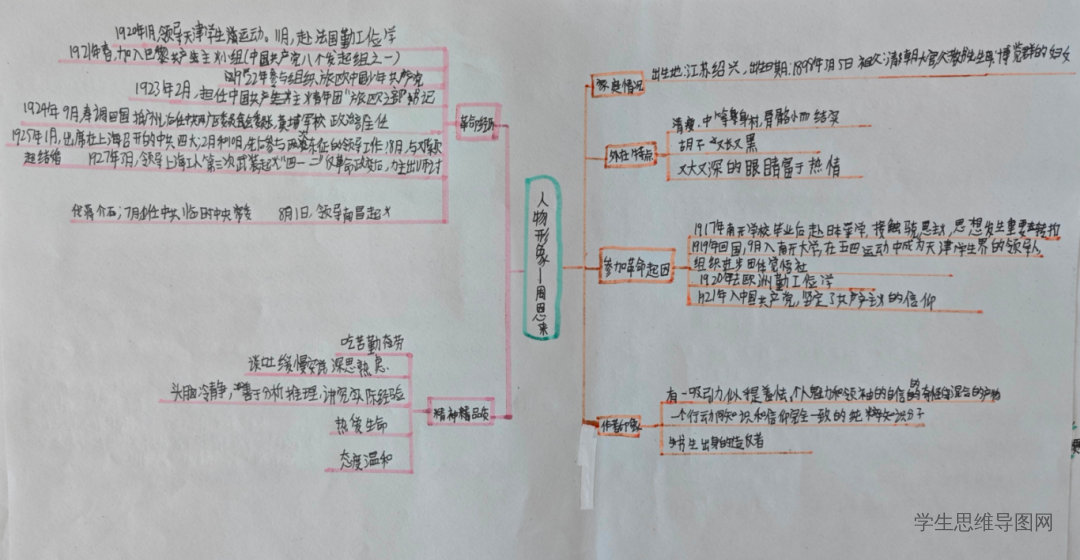 人物形象—周恩来
革命经历
1920年1月,领导天津学生运动。11月,赴法国勤工俭学
1921年春,加入巴黎共产主义小组(中国共产党八个发起组之一)
1922年参与组织旅欧中国少年共产党
1923年2月,担任中国共产主义青年团"旅欧之部"书记
1924年9月,奉调回国
黄埔军校 政治部主任
1925年1月,出席在上海召开的中共四大;2月和10月,先后参与两次东征的领导工作;8月,与邓颖超
起结婚 1927年3月,领导上海工人第三次武装起义"四一二"反革命政变后,力主出师讨
伐蒋介石;7月任中共临时中央常委 8月1日,领导南昌起义
精神精品质
吃苦勤劳
谈吐缓慢安详 深思熟虑
头脑冷静,善于分析推理,讲究实际经验
热爱生命
态度温和
家庭情况
出生地:江苏绍兴,出生日期:1898年3月5日
外在特点
清瘦,中等身材,骨骼小而结实
胡子又长又黑
又大又深的眼睛富于热情
参加革命起因
1917年南开学校毕业后赴日本留学,接触马克思主义,思想发生重要转折
1919年回国,9月入南开大学,在五四运动中成为天津学生界的领导人
组织进步团体觉悟社
1920年去欧洲勤工俭学
1921年入中国共产党,坚定了共产主义的信仰
作者印象
有一吸引力似
个人魅力和领袖的自信的奇怪的混合的产物
一个行动同知识和信仰完全一致的纯粹知识分子
书生出身的造反者
学生思维导图网